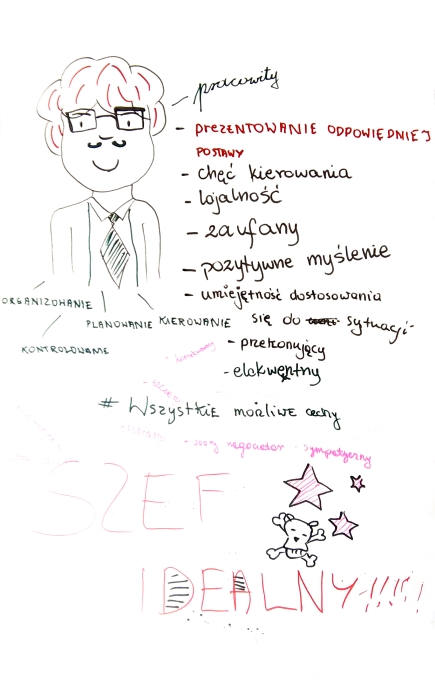 - pracowity
- PREZENTOWANIE ODPOWIEDNIEJ
POSTAWY
- chęć kierowania
- lojalność
- zaufany
- pozytywne myślenie
- umiejętność dostosowania
się do sytuacji
- przekonujący
- elokwentny
ORGANIZOWANIE
PLANOWANIE KIEROWANIE
KONTROLOWANIE
# Wszystkie możliwe cechy
- dobry negocjator - sympatyczny
SZEF
IDEALNY!!!!!